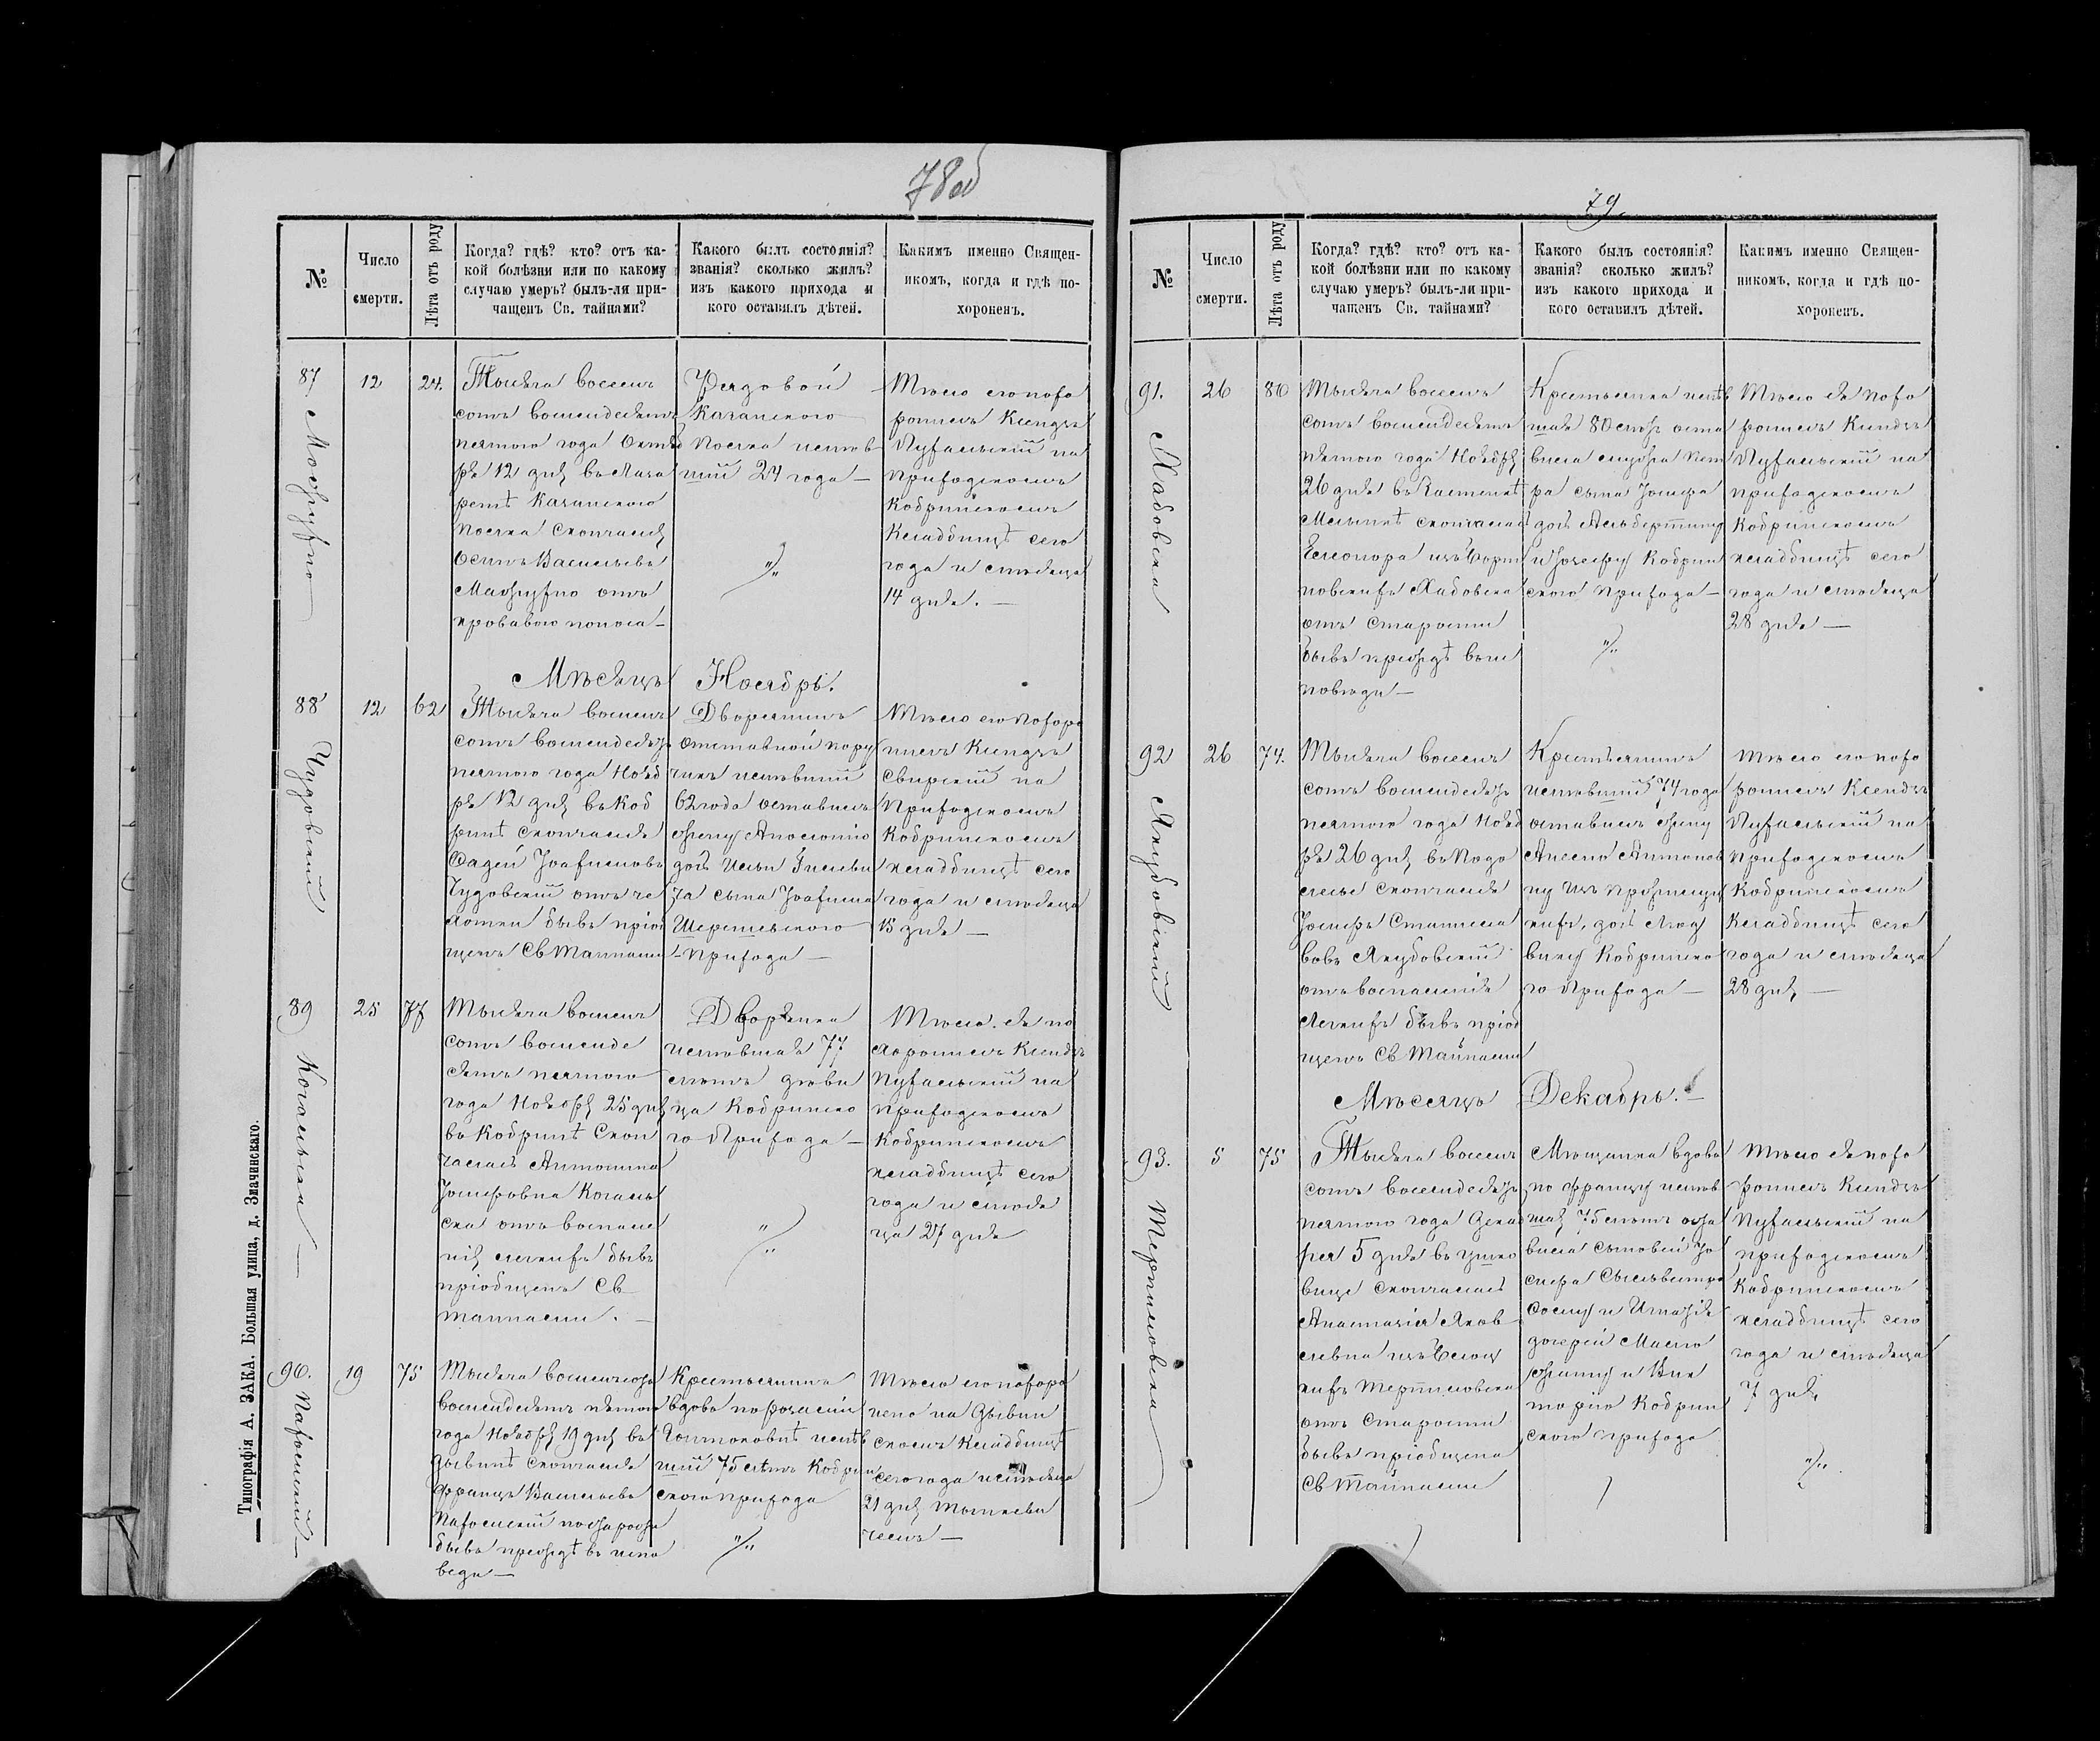 78об
№
Число
смерти.
Лѣта отъ роду
Когда? гдѣ? кто? отъ ка-
кой болѣзни или по какому
случаю умеръ? былъ-ли при-
чащенъ Св. тайнами?
Какого былъ состоянія?
званія? сколько жилъ?
изъ какого прихода и
кого оставилъ дѣтей.
Какимъ именно Священ-
никомъ, когда и гдѣ по-
хороненъ.
87
12
24.
Тысяча восемь
сотъ восемдесятъ
пятого года Октяб
ря 12 дня въ Лаза
ретѣ Казанскаго
полка скончался
Васильевъ
отъ
кроваваго поноса —
Рядовой
Казанскаго
Полка
24 года —
Тѣло его похо
ронилъ Ксендзъ
Пухальскій на
приходскомъ
Кобринскомъ
Кладбищѣ сего
года и мѣсяца
14 дня. —
Мѣсяцъ Ноябрь.
88
Чудовскій
12
62
Тысяча восемь
сотъ восемдесятъ
пятого года Нояб
ря 12 дня въ Коб
ринѣ скончался
Фадей
Чудовскій отъ ча
хотки бывъ пріоб
щенъ Св Тайнами
Дворянинъ
отставной пору
чикъ имѣвшій
62 года оставилъ
жену
сына
Шерешевскаго
прихода —
Тѣло его Похоро
нилъ Ксендзъ
Свирскій на
Приходскомъ
Кобринскомъ
кладбищѣ сего
года и мѣсяца
15 дня —
89
25
77
Тысяча восемь
сотъ восемде
сятъ пятого
года Ноября 25 дня
въ Кобринѣ Скон
чалась Антонина
Іосифовна
отъ воспале
нія легкихъ бывъ
пріобщена Св
тайнами. —
Дворянка
имѣвшая 77
лѣтъ дѣви
ца Кобринска
го Прихода —
Тѣло ея по
хоронилъ Ксендзъ
Пухальскій на
приходскомъ
Кобринскомъ
кладбищѣ сего
года и мѣся
ца 27 дня
90.
19
75
Тысяча восемьсотъ
восемдесятъ пятого
года Ноября 19 дня въ
Дывинѣ скончался
Францъ Васильевъ
бывъ прежде въ испо
веди —
Крестьянинъ
75 лѣтъ Кобрин
скаго прихода
Тѣло его похоро
нено на Дывин
скомъ Кладбищѣ
сего года и мѣсяца
21 дня
Типографія А. ЗАКА. Большая улица, д. Значинскаго.
79
№
Число
смерти.
Лѣта отъ роду
Когда? гдѣ? кто? отъ ка-
кой болѣзни или по какому
случаю умеръ? былъ-ли при-
чащенъ Св. тайнами?
Какого былъ состоянія?
званія? сколько жилъ?
изъ какого прихода и
кого оставилъ дѣтей.
Какимъ именно Священ-
никомъ, когда и гдѣ по-
хороненъ.
91.
26
80
Тысяча восемь
сотъ восемдесятъ
пятого года Ноября
26 дня въ
скончалась
Елеонора
отъ старости
бывъ прежде въ ис
поведи —
Крестьянка имѣв
шая 80 лѣтъ оста
вила мужа Пет
ра сына Іосифа
дочь Альбертину
и Іозефу Кобрин
скаго прихода —
Тѣло ея похо
ронилъ Ксендзъ
Пухальскій на
приходскомъ
Кобринскомъ
кладбищѣ сего
года и мѣсяца
28 дня —
92
Якубовскій
26
74.
Тысяча восемь
сотъ восемдесятъ
пятого года Нояб
ря 26 дня въ
скончался
Іосифъ Станисла
вовъ Якубовскій
отъ воспаленія
легкихъ бывъ пріоб
щенъ Св Тайнами
Крестьянинъ
имѣвшій 74 года
оставилъ жену
Антонов
ну
дочь Люд
вику Кобринска
го Прихода —
Тѣло его похо
ронилъ Ксендзъ
Пухальскій на
приходскомъ
Кобринскомъ
Кладбищѣ сего
года и мѣсяца
28 дня —
Мѣсяцъ Декабрь. —
93.
5
75
Тысяча восемь
сотъ восемдесятъ
пятого года Декаб
ря 5 дня въ
скончалась
Анастазія Яков
левна
отъ старости
бывъ пріобщена
Св Тайнами
Мѣщанка вдова
по Францу имѣв
шая 75 лѣтъ оста
вила сыновей Іо
сифа Сильвестра
дочерей
и Вик
торію Кобрин
скаго прихода
Тѣло ея похо
ронилъ Ксендзъ
Пухальскій на
приходскомъ
Кобринскомъ
кладбищѣ сего
года и мѣсяца
7 дня